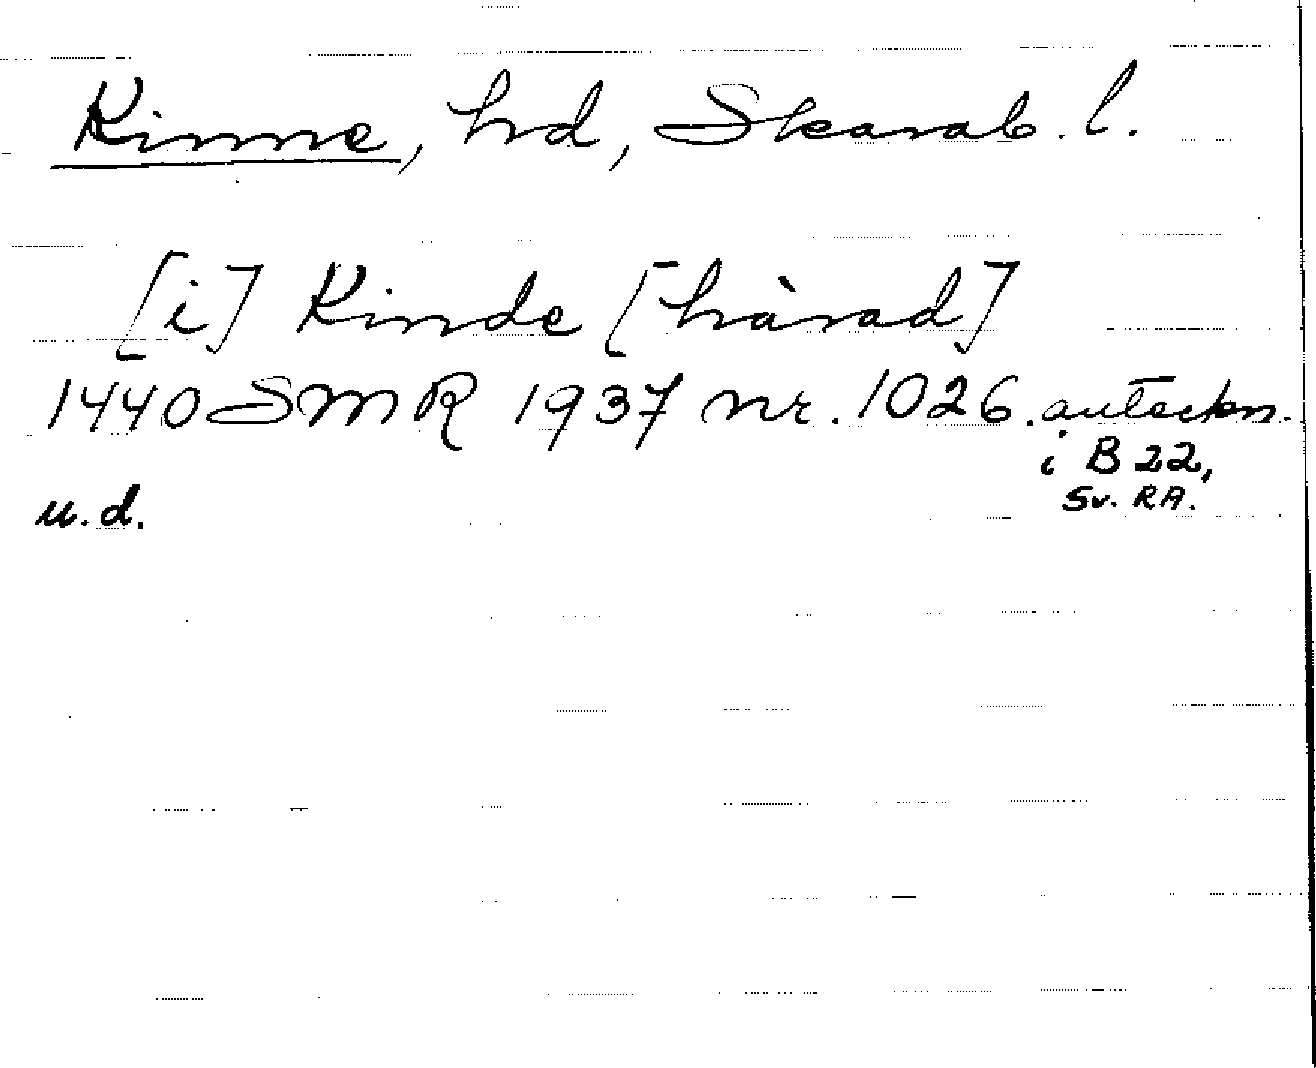 Kinne, hd, Skarab. l.
[i] Kinde [hàrad]
1440 SMR 1937 nr. 1026. anteckn.
i B 22,
Sv. RA.
u.d.